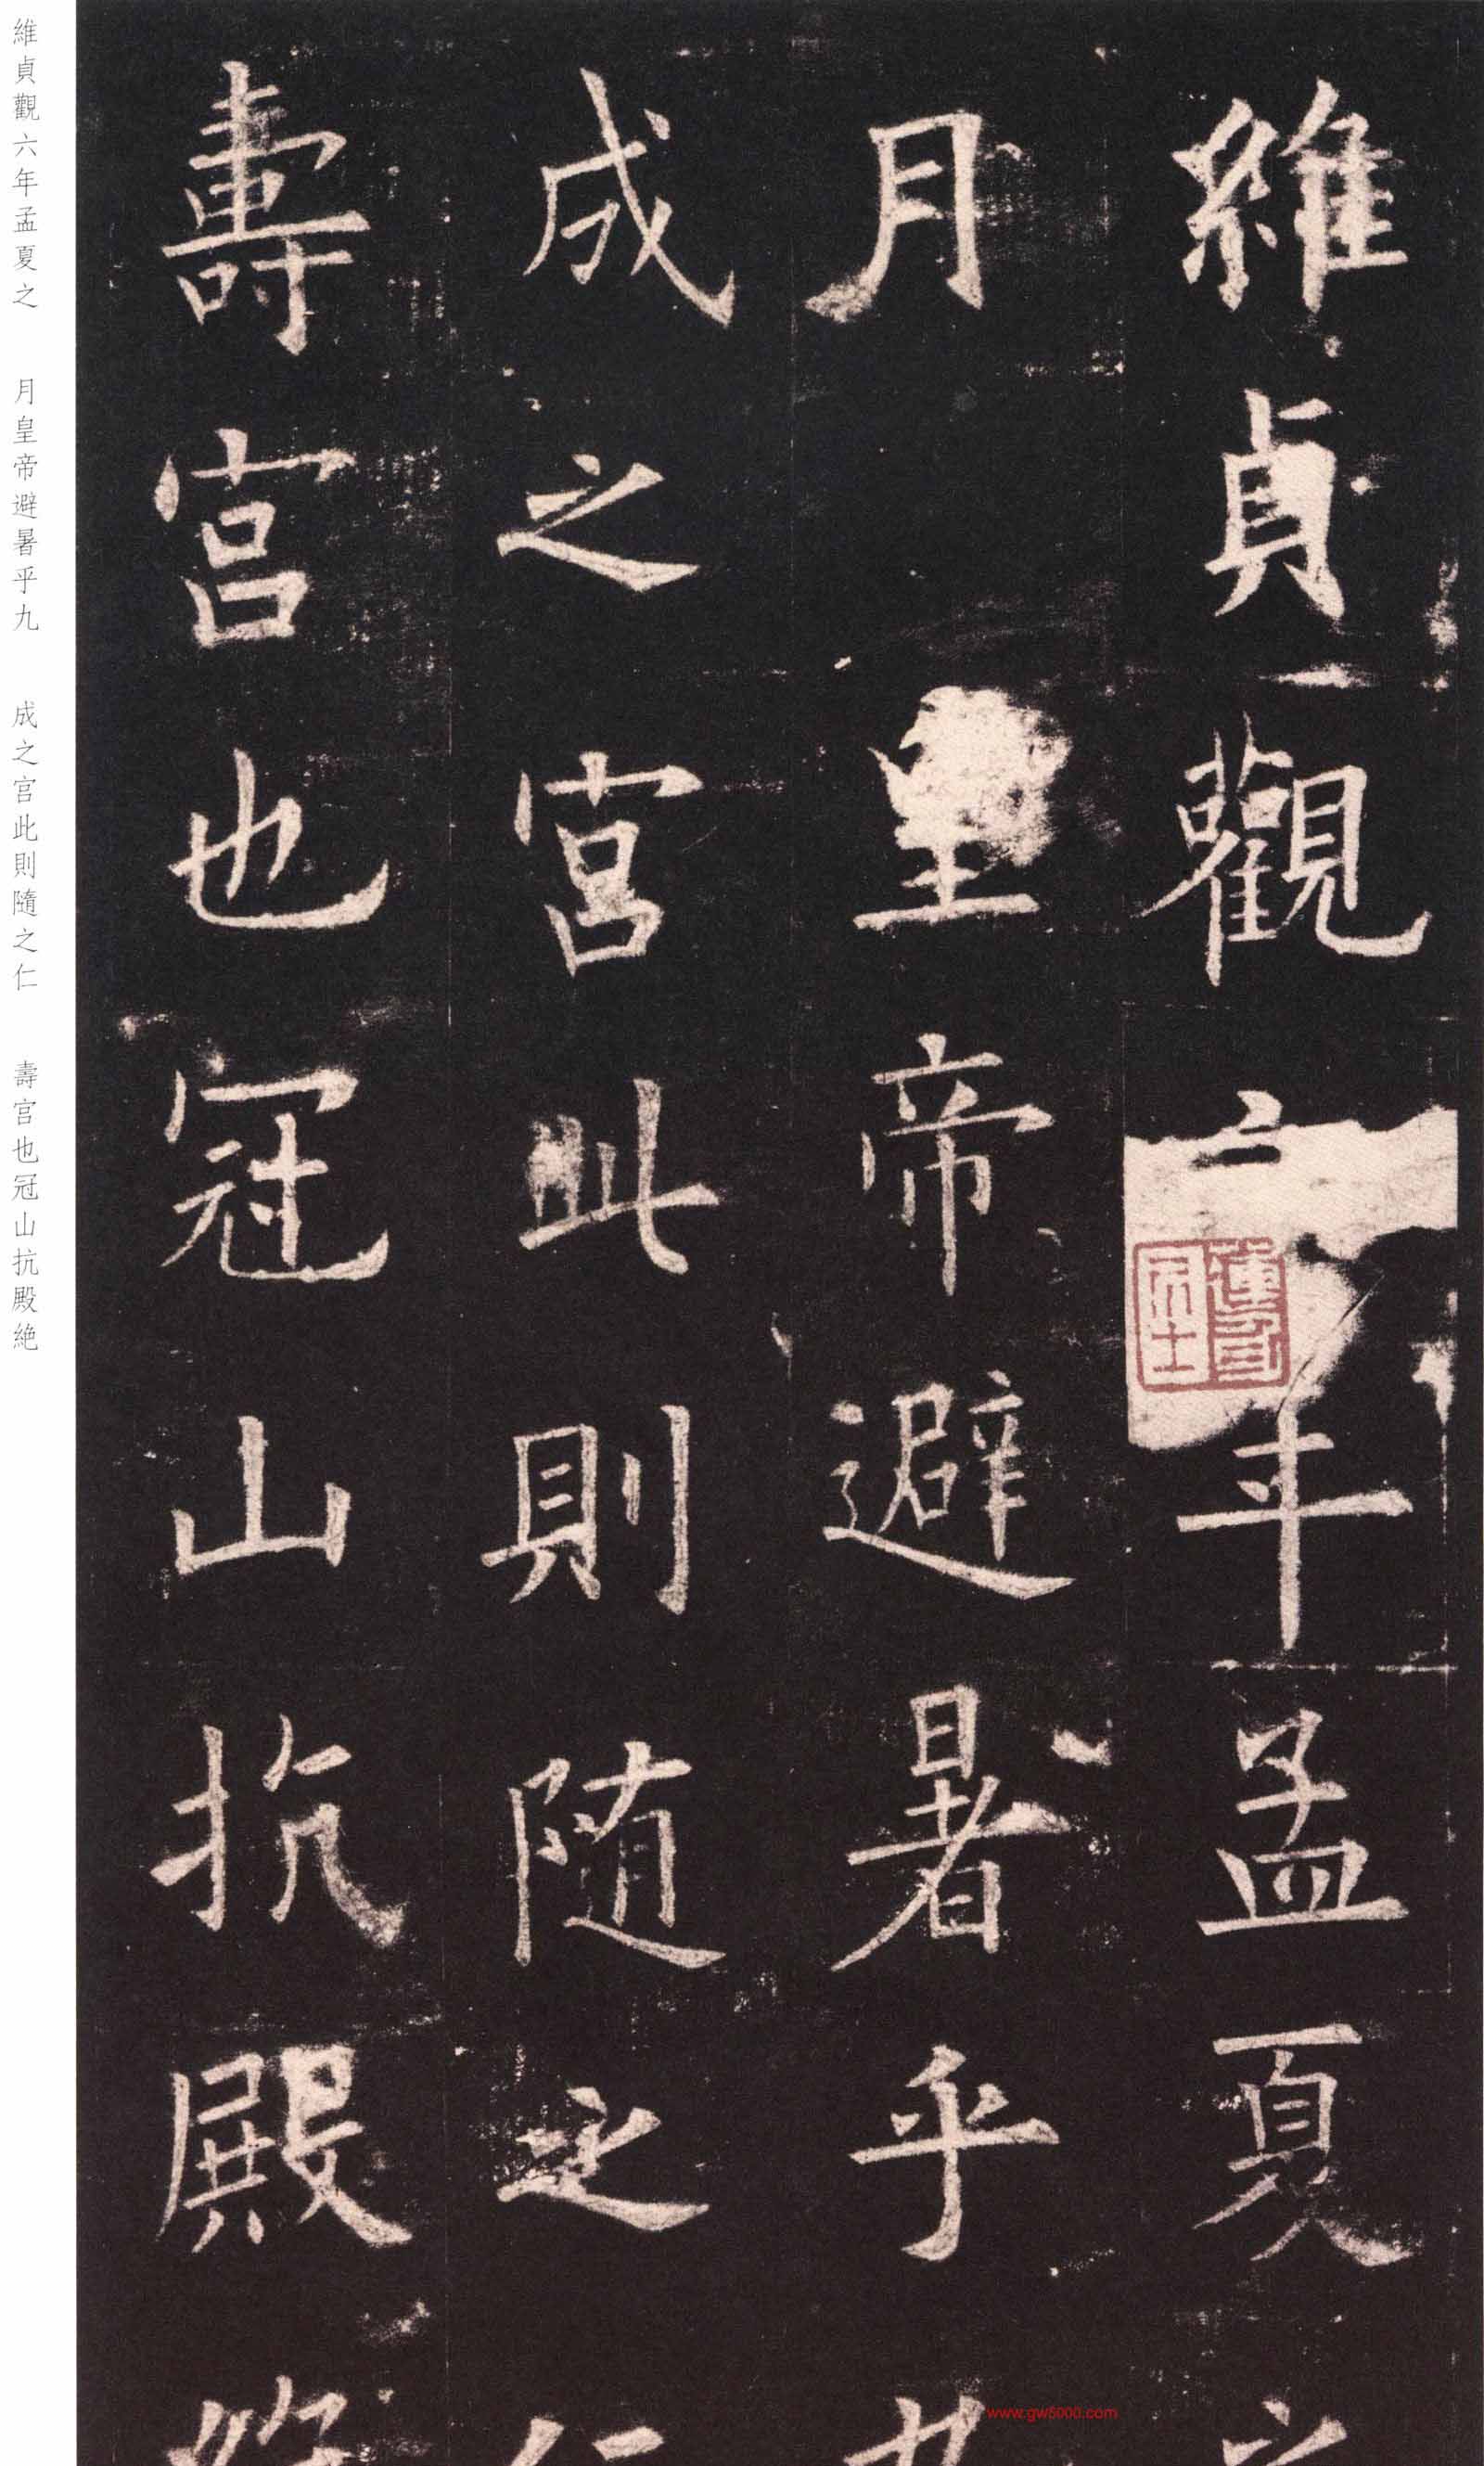 維貞觀六年孟夏之
月皇帝避暑乎九
成之宮此則隨之仁
壽宮也冠山抗殿絕
維貞觀六年孟夏之 月皇帝避暑乎九 成之宮此則隨之仁 壽宮也冠山抗殿絶
www.gw5000.com